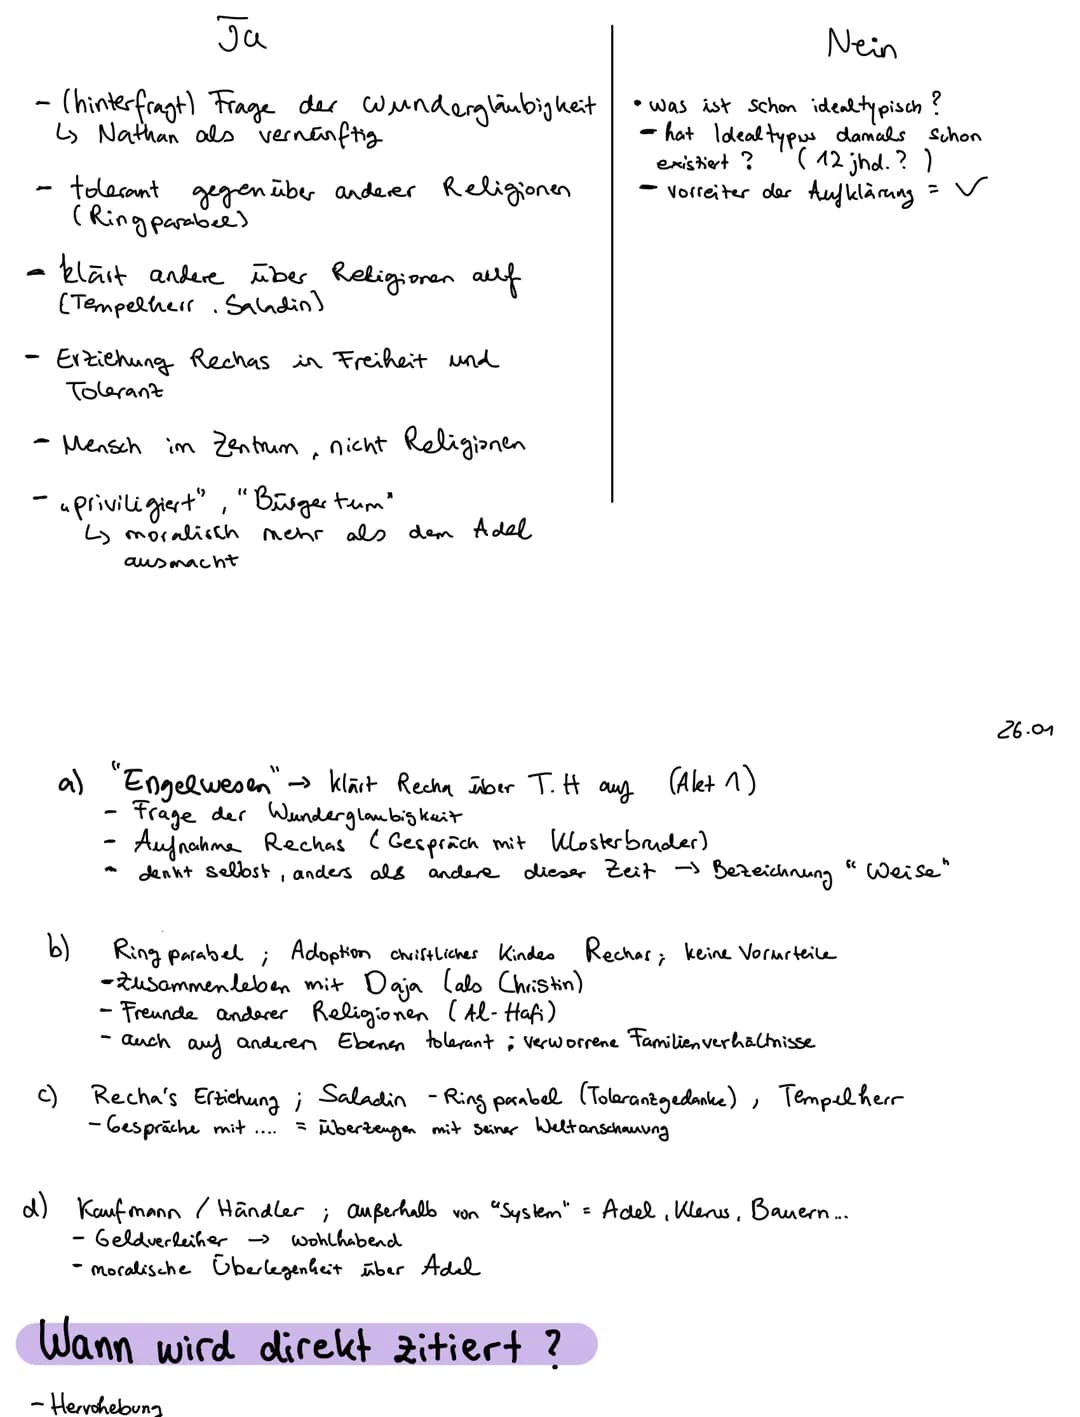 Ja
- (hinterfragt) Frage der Wundergläubigkeit
↳ Nathan als vernünftig
- tolerant gegenüber anderer Religionen
(Ringparabel)
- klärt andere über Religionen auf
(Tempelherr, Saladin)
- Erziehung Rechas in Freiheit und
Toleranz
- Mensch im Zentrum, nicht Religionen
- "priviligiert", "Bürgertum"
↳ moralisch mehr als dem Adel
ausmacht
Nein
• was ist schon idealtypisch?
- hat Idealtypus damals schon
existiert? (12 jhd.?)
- Vorreiter der Aufklärung = ✓
26.01
a) "Engelwesen" → klärt Recha über T.H auf (Akt 1)
- Frage der Wunderglaubigkeit
- Aufnahme Rechas (Gespräch mit Klosterbruder)
- denkt selbst, anders als andere dieser Zeit → Bezeichnung "Weise"
b) Ringparabel; Adoption christliches Kindes Rechas; keine Vorurteile
- Zusammenleben mit Daja (als Christin)
- Freunde anderer Religionen (Al-Hafi)
- auch auf anderen Ebenen tolerant; verworrene Familienverhältnisse
c) Recha's Erziehung; Saladin - Ringparabel (Toleranzgedanke), Tempelherr
- Gespräche mit .... = überzeugen mit seiner Weltanschauung
d) Kaufmann / Händler; außerhalb von "System" = Adel, Klerus, Bauern...
- Geldverleiher → wohlhabend
- moralische Überlegenheit über Adel
Wann wird direkt zitiert?
- Hervohebung